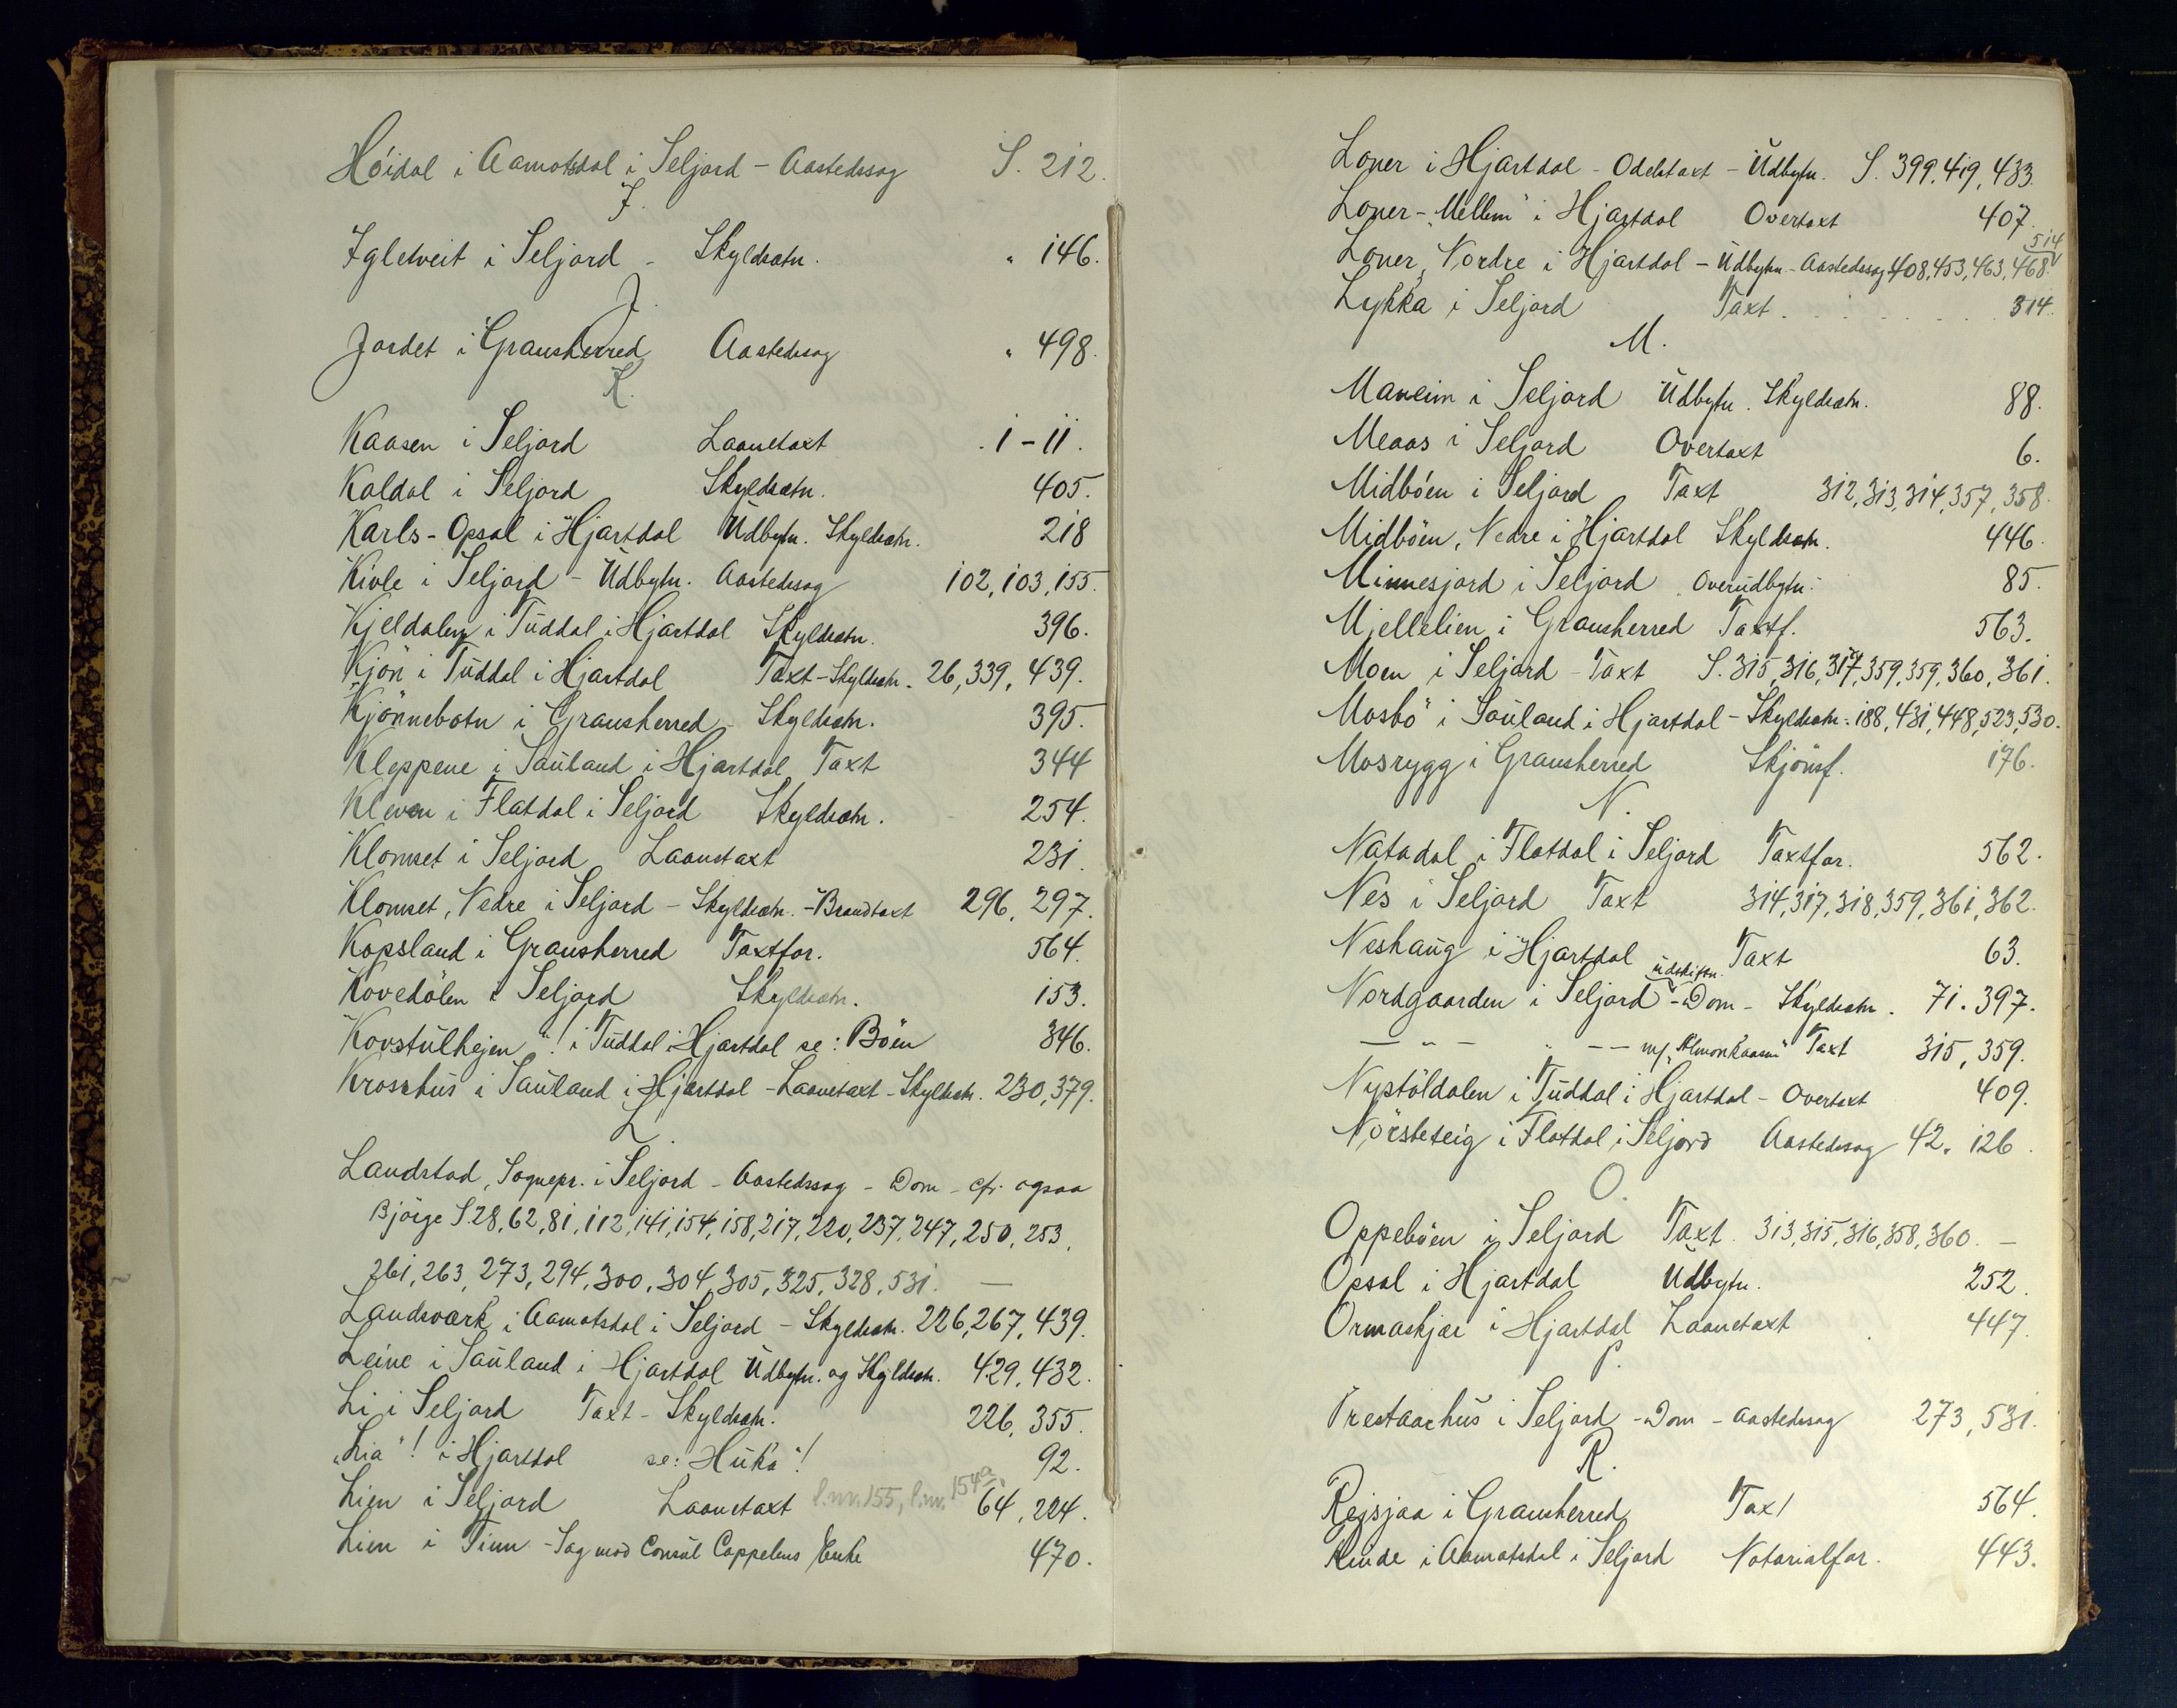 Höidal i Aamotsdal i Seljord - Aastedssag S. 212.
I.
Igletveit i Seljord - Skyldsætn. " 146.
J.
Jordet i Gransherred Aastedssag " 498.
K.
Kaasen i Seljord Laanetaxt 1-11.
Kaldal i Seljord Skyldsætn. 405.
Karls-Opsal i Hjartdal Udbytn. Skyldsætn. 218
Kivle i Seljord - Udbytn. Aastedssag 102, 103, 155.
Kjeldalen i Tuddal i Hjartdal Skyldsætn. 396.
"Kjön" i Tuddal i Hjartdal Taxt - Skyldsætn. 26, 339, 439.
Kjönnebotn i Gransherred - Skyldsætn. 395.
Kleppene i Sauland i Hjartdal Taxt 344
Kleven i Flatdal i Seljord Skyldsætn. 254.
Klomset i Seljord Laanetaxt 231.
Klomset, Nedre i Seljord - Skyldsætn. - Brandtaxt 296, 297.
Kopsland i Gransherred Taxtfor. 564.
Kovedölen i Seljord Skyldsætn. 153.
"Kovstulhejen"! i Tuddal i Hjartdal se: Böen 346.
Krosshus i Sauland i Hjartdal - Laanetaxt - Skyldsætn. 230, 379.
L.
Landstad, Sognepr. i Seljord - Aastedssag - Dom - cfr. ogsaa
Björge S. 28, 62, 81, 112, 141, 154, 158, 217, 220, 237, 247, 250, 253,
261, 263, 273, 294, 300, 304, 305, 325, 328, 531. —
Landsværk i Aamotsdal i Seljord - Skyldsætn. 226, 267, 439.
Leine i Sauland i Hjartdal Udbytn. og Skyldsætn. 429, 432.
Li i Seljord Taxt - Skyldsætn. 226, 355.
"Lia"! i Hjartdal se: "Huka"! 92.
Lien i Seljord Laanetaxt l.nr. 155, l.nr. 154a. 64, 224.
Lien i Tinn - Sag mod Consul Cappelens Enke 470.
Loner i Hjartdal - Odelstaxt - Udbytn. S. 399, 419, 433.
Loner - "Mellem" i Hjartdal Overtaxt 407.
514
Loner, Nordre i Hjartdal - Udbytn - Aastedssag 408, 453, 463, 468.
Lykkja i Seljord Taxt 314.
M.
Maneim i Seljord Udbytn. Skyldsætn. 88.
Meaas i Seljord Overtaxt 6.
Midböen i Seljord Taxt 312, 313, 314, 357, 358.
Midböen, Nedre i Hjartdal Skyldsætn. 446.
Minnesjord i Seljord Overudbytn. 85.
Mjellelien i Gransherred Taxtf. 563.
Moen i Seljord - Taxt S. 315, 316, 317, 359, 359, 360, 361.
Mosbö i Sauland i Hjartdal - Skyldsætn. 188, 431, 448, 523, 530.
Mosrygg i Gransherred Skjönsf. 176.
N.
Natadal i Flatdal i Seljord Taxtfor. 562.
Nes i Seljord Taxt 314, 317, 318, 359, 361, 362.
Neshaug i Hjartdal Taxt 63.
udskiftn.
Nordgaarden i Seljord - Dom - Skyldsætn. 71. 397.
— " — " — m/ "Almonkaasa" Taxt 315, 359.
Nystöldalen i Tuddal i Hjartdal - Overtaxt 409.
Nörsteteig i Flatdal i Seljord Aastedssag 42. 126.
O.
Oppeböen i Seljord Taxt 313, 315, 316, 358, 360. —
Opsal i Hjartdal Udbytn. 252.
Ormaskjær i Hjartdal Laanetaxt 447.
P.
Prestaarhus i Seljord - Dom - Aastedssag 273, 531.
R.
Rejsjaa i Gransherred Taxt 564.
Rinde i Aamotsdal i Seljord Notarialfor. 443.